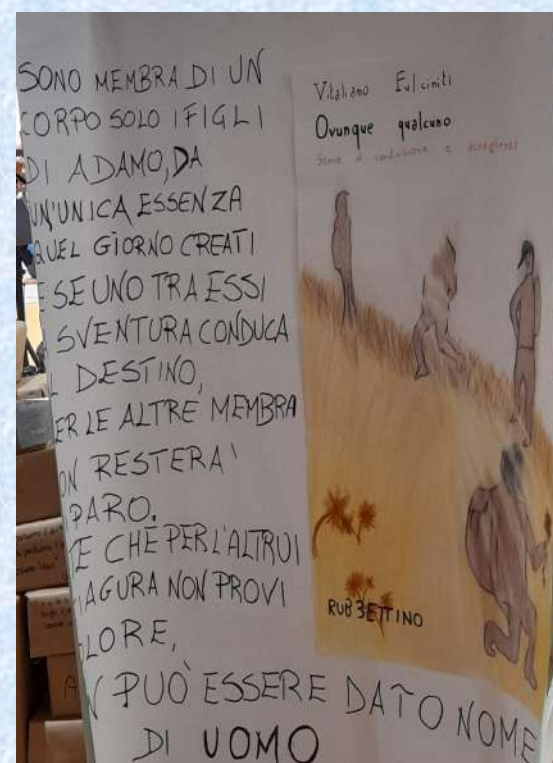 SONO MEMBRA DI UN
CORPO SOLO I FIGLI
DI ADAMO, DA
UN'UNICA ESSENZA
QUEL GIORNO CREATI
E SE UNO TRA ESSI
SVENTURA CONDUCA
L DESTINO,
ER LE ALTRE MEMBRA
ON RESTERA'
PARO.
TE CHE PER L'ALTRUI
IAGURA NON PROVI
LORE,
PUÒ ESSERE DATO NOME
DI UOMO
Vitaliano Fulciniti
Ovunque qualcuno
Storie di condivisione e accoglienza
RUBBETTINO